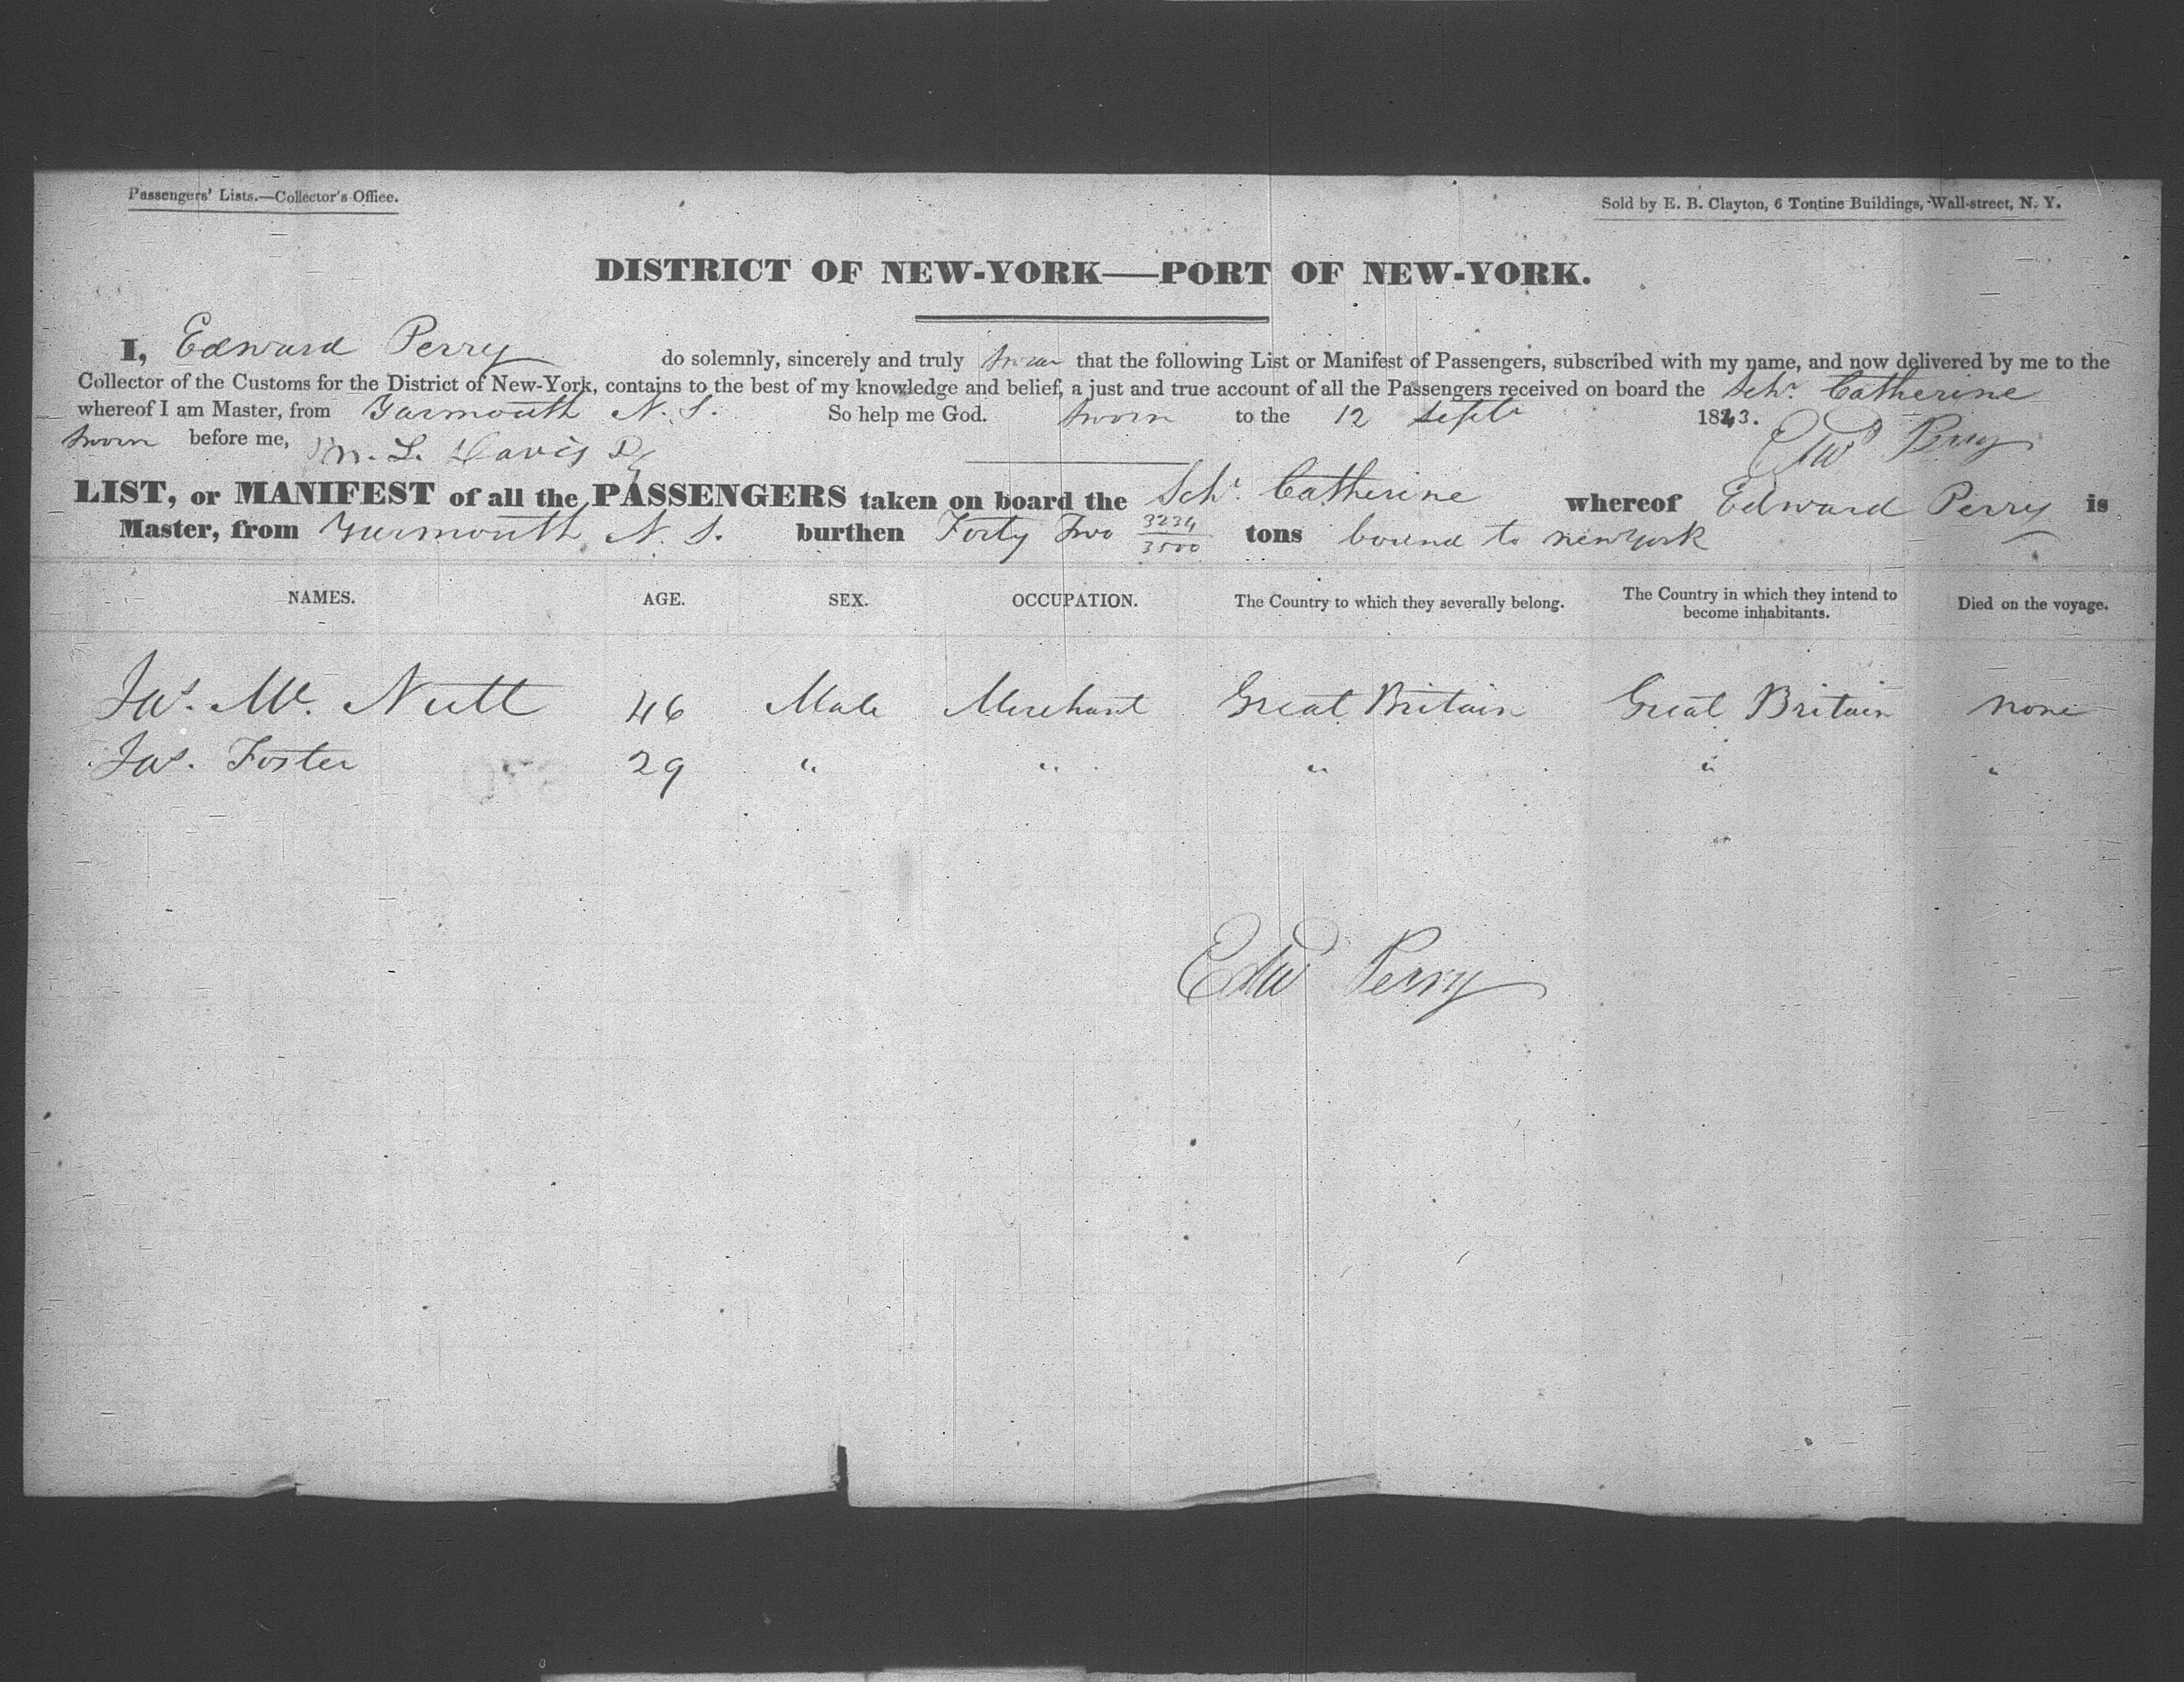 Passengers' Lists.—Collector's Office.
Sold by E. B. Clayton, 6 Tontine Buildings, Wall-street, N. Y.
DISTRICT OF NEW-YORK—PORT OF NEW-YORK.
I, Edward Perry do solemnly, sincerely and truly swear that the following List or Manifest of Passengers, subscribed with my name, and now delivered by me to the
Collector of the Customs for the District of New-York, contains to the best of my knowledge and belief, a just and true account of all the Passengers received on board the Schr. Catherine
whereof I am Master, from Yarmouth N. S. So help me God. Sworn to the 12 Sept 1843.
Sworn before me, M. L. Davis Edwd Perry
LIST, or MANIFEST of all the PASSENGERS taken on board the Schr. Catherine whereof Edward Perry is
Master, from Yarmouth N. S. burthen Forty Two 3234/3500 tons bound to new york
NAMES. AGE. SEX. OCCUPATION. The Country to which they severally belong. The Country in which they intend to become inhabitants. Died on the voyage.
Jas. Mc. Nutt 46 Male Merchant Great Britain Great Britain none
Jas. Foster 29 " " " " "
Edwd Perry